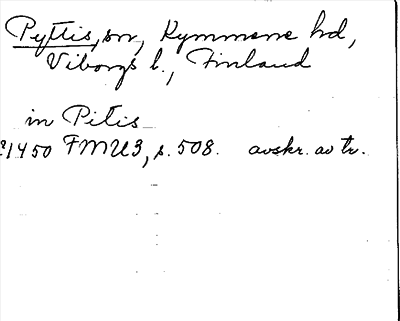 Pyttis, sn, Kymmene hd,
Viborgs l., Finland
in Pitis
?1450 FMU3, s. 508. avskr. av tr.